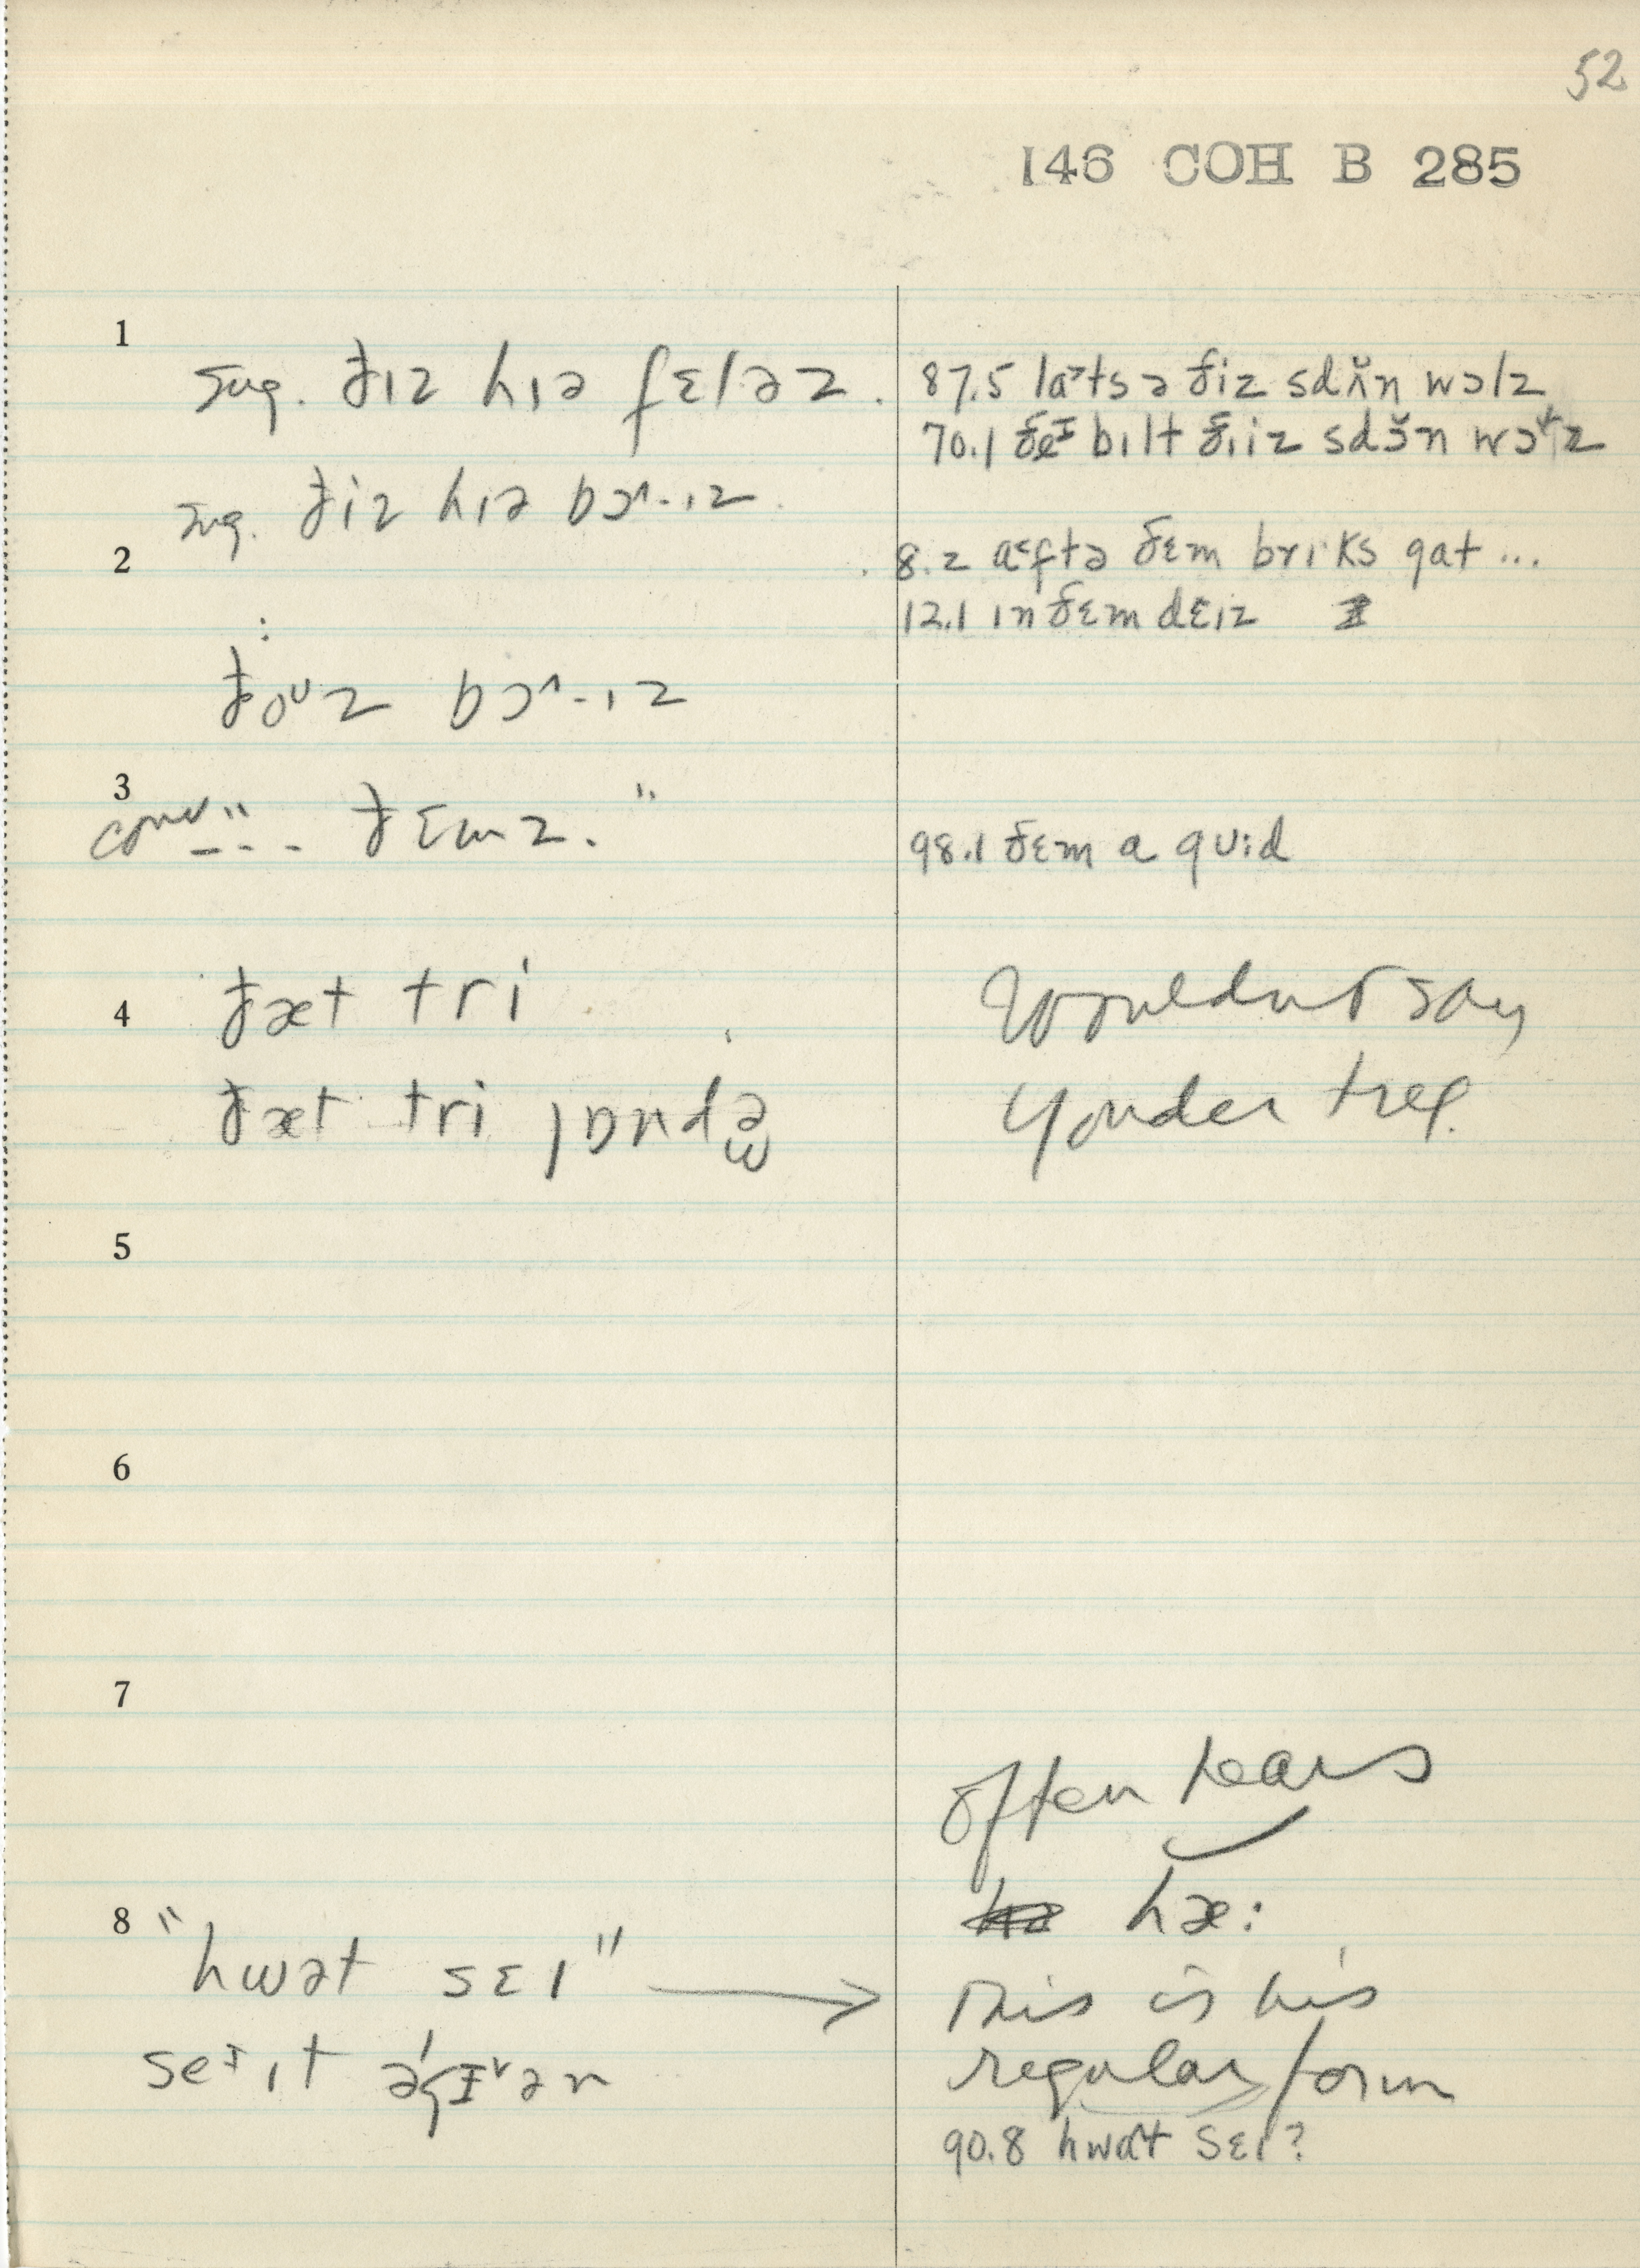 52
146 COH B 285
1
sug. ðɪz hɪə fɛləz.
87.5 laˀts ə ðiz sdɔ̆n wɔlz
70.1 ðeᶦ bɪlt ðɪiz sdɔ̆n wɔz
sug. ðiz hɪə bɔ^-ɪz
2
8.2 aᵋftə ðɛm brıks gat ...
12.1 ɪn ðɛm dɛɪz
:
ðoᶷz bɔ^-ɪz
3
conv. "--- ðɛmz."
98.1 ðɛm a gʊid
4
ðæt tri
Wouldn't say
ðæt tri jɒndə
yonder tree.
5
6
7
often hears
hæ:
8
"hwət sɛɪ" →
This is his
seᶦ ɪt əˈgɪᵛən
regular form
90.8 hwat sɛɪ?